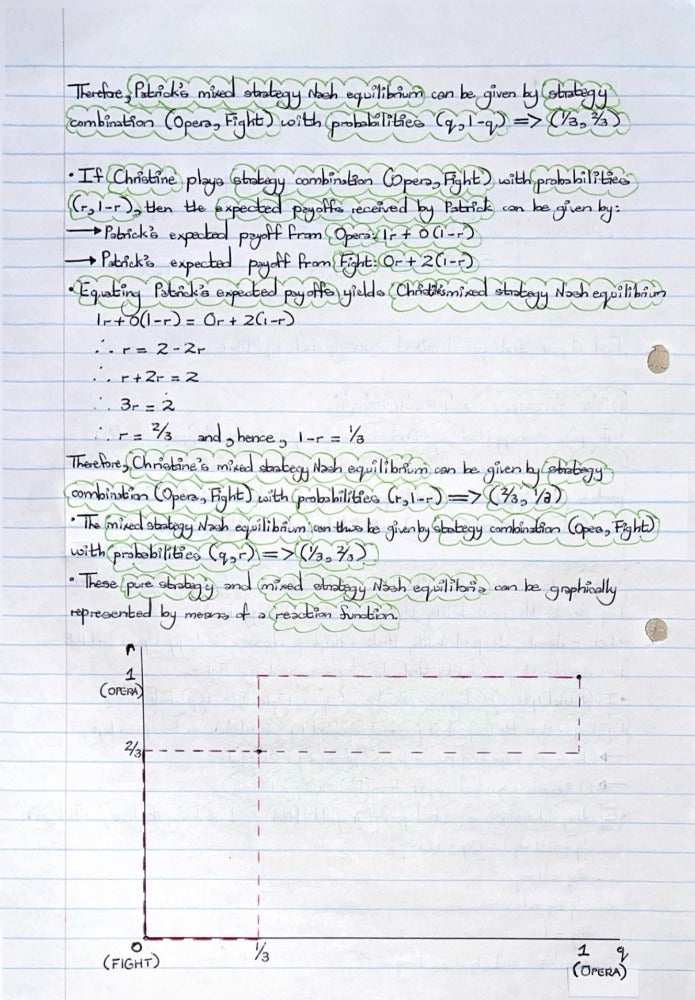 Therefore, Patrick's mixed strategy Nash equilibrium can be given by strategy
combination (Opera, Fight) with probabilities (q, 1-q) => (1/3, 2/3)
• If Christine plays strategy combination (Opera, Fight) with probabilities
(r, 1-r), then the expected payoffs received by Patrick can be given by:
→ Patrick's expected payoff from Opera: 1r + 0(1-r)
→ Patrick's expected payoff from Fight: 0r + 2(1-r)
• Equating Patrick's expected payoffs yields mixed strategy Nash equilibrium
1r + 0(1-r) = 0r + 2(1-r)
∴ r = 2 - 2r
∴ r + 2r = 2
∴ 3r = 2
∴ r = 2/3 and, hence, 1-r = 1/3
Therefore, Christine's mixed strategy Nash equilibrium can be given by strategy
combination (Opera, Fight) with probabilities (r, 1-r) => (2/3, 1/3)
• The mixed strategy Nash equilibrium can thus be given by strategy combination (Opera, Fight)
with probabilities (q, r) => (1/3, 2/3)
• These pure strategy and mixed strategy Nash equilibria can be graphically
represented by means of a reaction function.
r
1
(OPERA)
2/3
0 1/3 1 q
(FIGHT) (OPERA)